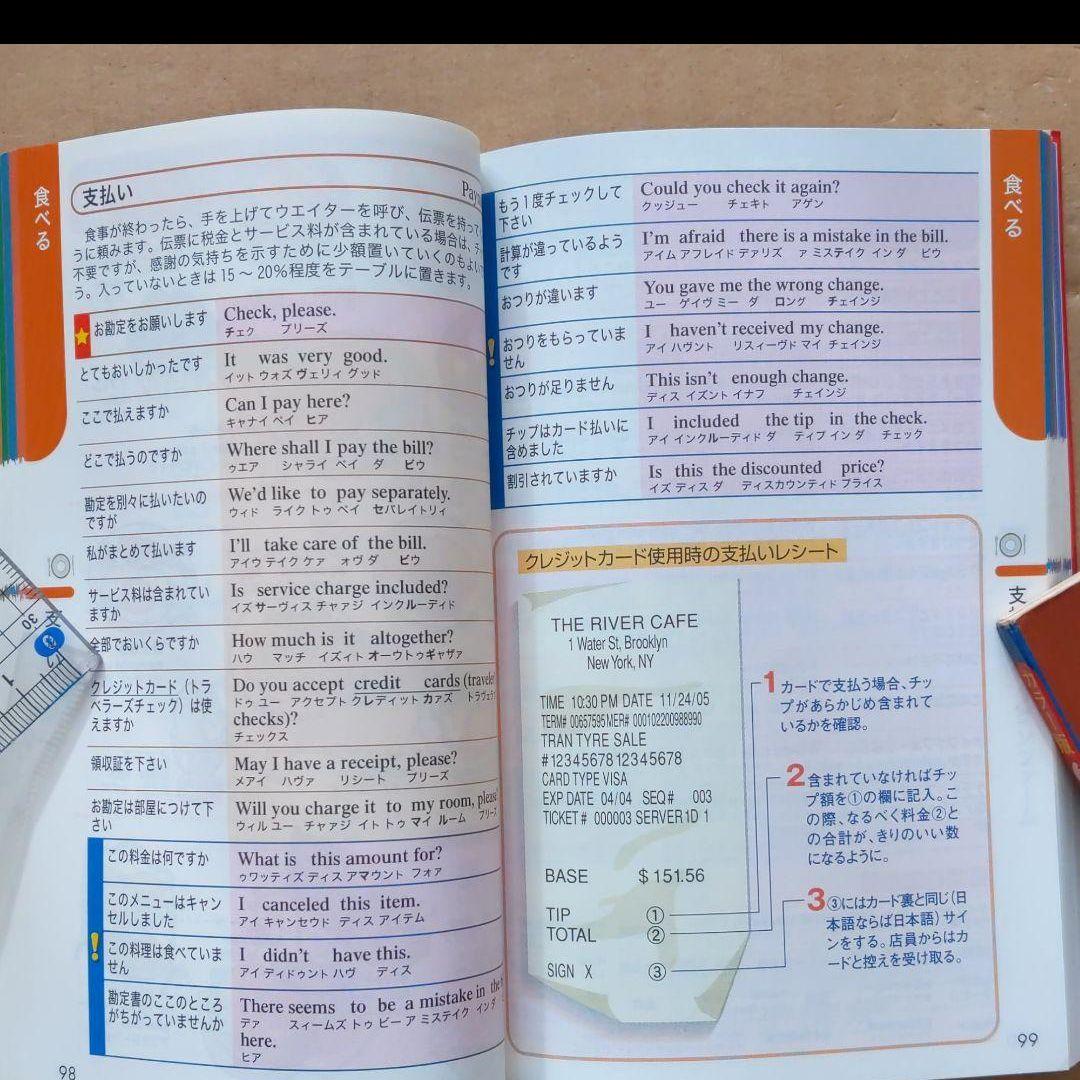 食べる
支払い
食事が終わったら、手を上げてウエイターを呼び、伝票を持って
うに頼みます。伝票に税金とサービス料が含まれている場合は、
不要ですが、感謝の気持ちを示すために少額置いていくのもよい
う。入っていないときは15～20%程度をテーブルに置きます。
お勘定をお願いします
Check, please.
チェク プリーズ
とてもおいしかったです
It was very good.
イット ウォズ ヴェリィ グッド
ここで払えますか
Can I pay here?
キャナイ ペイ ヒア
どこで払うのですか
Where shall I pay the bill?
ゥエア シャライ ペイ ダ ビウ
勘定を別々に払いたいの
ですが
We'd like to pay separately.
ウィド ライク トゥ ペイ セパレイトリィ
私がまとめて払います
I'll take care of the bill.
アイウ テイク ケァ オヴ ダ ビウ
サービス料は含まれてい
ますか
Is service charge included?
イズ サーヴィス チャァジ インクルーディド
全部でおいくらですか
How much is it altogether?
ハウ マッチ イズィト オーウトゥギャザァ
クレジットカード（トラ
ベラーズチェック）は使
えますか
Do you accept credit cards (traveler
ドゥ ユー アクセプト クレディット カァズ トラヴェラ
checks)?
チェックス
領収証を下さい
May I have a receipt, please?
メアイ ハヴァ リシート プリーズ
お勘定は部屋につけて下
さい
Will you charge it to my room, please
ウィル ユー チャァジ イト トゥ マイ ルーム プリーズ
この料金は何ですか
What is this amount for?
ゥワッティズ ディス アマウント フォァ
このメニューはキャン
セルしました
I canceled this item.
アイ キャンセウド ディス アイテム
!
この料理は食べていま
せん
I didn't have this.
アイ ディドゥント ハヴ ディス
勘定書のここのところ
がちがっていませんか
There seems to be a mistake in the
デァ スィームズ トゥ ビー ア ミステイク イン ダ
here.
ヒア
98
30
1
食べる
もう1度チェックして
下さい
Could you check it again?
クッジュー チェキト アゲン
計算が違っているよう
です
I'm afraid there is a mistake in the bill.
アイム アフレイド デァリズ ァ ミステイク イン ダ ビウ
おつりが違います
You gave me the wrong change.
ユー ゲイヴ ミー ダ ロング チェインジ
!
おつりをもらっていま
せん
I haven't received my change.
アイ ハヴント リスィーヴド マイ チェインジ
おつりが足りません
This isn't enough change.
ディス イズント イナフ チェインジ
チップはカード払いに
含めました
I included the tip in the check.
アイ インクルーディド ダ ティプ イン ダ チェック
割引されていますか
Is this the discounted price?
イズ ディス ダ ディスカウンティド プライス
クレジットカード使用時の支払いレシート
THE RIVER CAFE
1 Water St, Brooklyn
New York, NY
TIME 10:30 PM DATE 11/24/05
TERM# 00657595 MER# 000102200988990
TRAN TYRE SALE
#1234567812345678
CARD TYPE VISA
EXP DATE 04/04 SEQ# 003
TICKET# 000003 SERVER1D 1
BASE $ 151.56
TIP ①
TOTAL ②
SIGN X ③
1 カードで支払う場合、チッ
プがあらかじめ含まれて
いるかを確認。
2 含まれていなければチッ
プ額を①の欄に記入。こ
の際、なるべく料金②と
の合計が、きりのいい数
になるように。
3 ③にはカード裏と同じ（日
本語ならば日本語）サイ
ンをする。店員からはカ
ードと控えを受け取る。
支
99